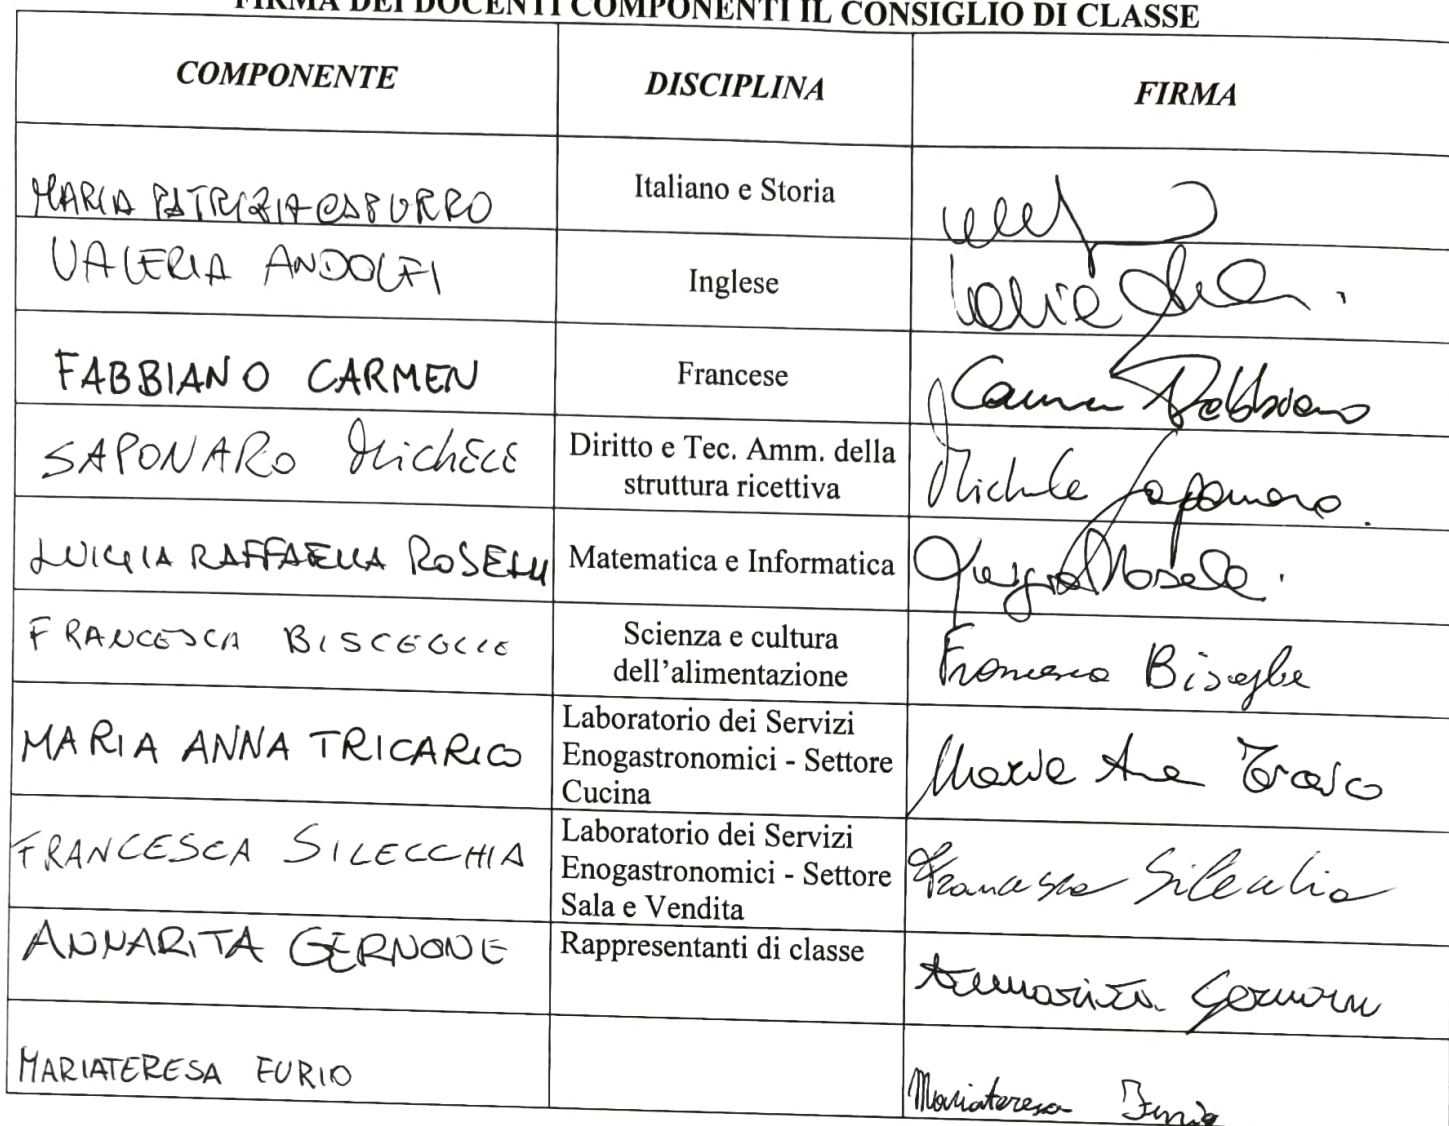 FIRMA DEI DOCENTI COMPONENTI IL CONSIGLIO DI CLASSE
COMPONENTE DISCIPLINA FIRMA
MARIA PATRIZIA CAPURRO Italiano e Storia
VALERIA ANDOLFI Inglese Valeria
FABBIANO CARMEN Francese Carmen Fabbiano
SAPONARO MicHELE Diritto e Tec. Amm. della
struttura ricettiva Michele Saponaro
LUIGIA RAFFAELLA ROSELLI Matematica e Informatica
FRANCESCA BISCEGLIE Scienza e cultura
dell'alimentazione Francesca Bisceglie
MARIA ANNA TRICARICO Laboratorio dei Servizi
Enogastronomici - Settore
Cucina Maria
FRANCESCA SILECCHIA Laboratorio dei Servizi
Enogastronomici - Settore
Sala e Vendita Francesca Silecchia
ANNARITA GERNONE Rappresentanti di classe Annarita Gernone
MARIATERESA FURIO Mariateresa Furio